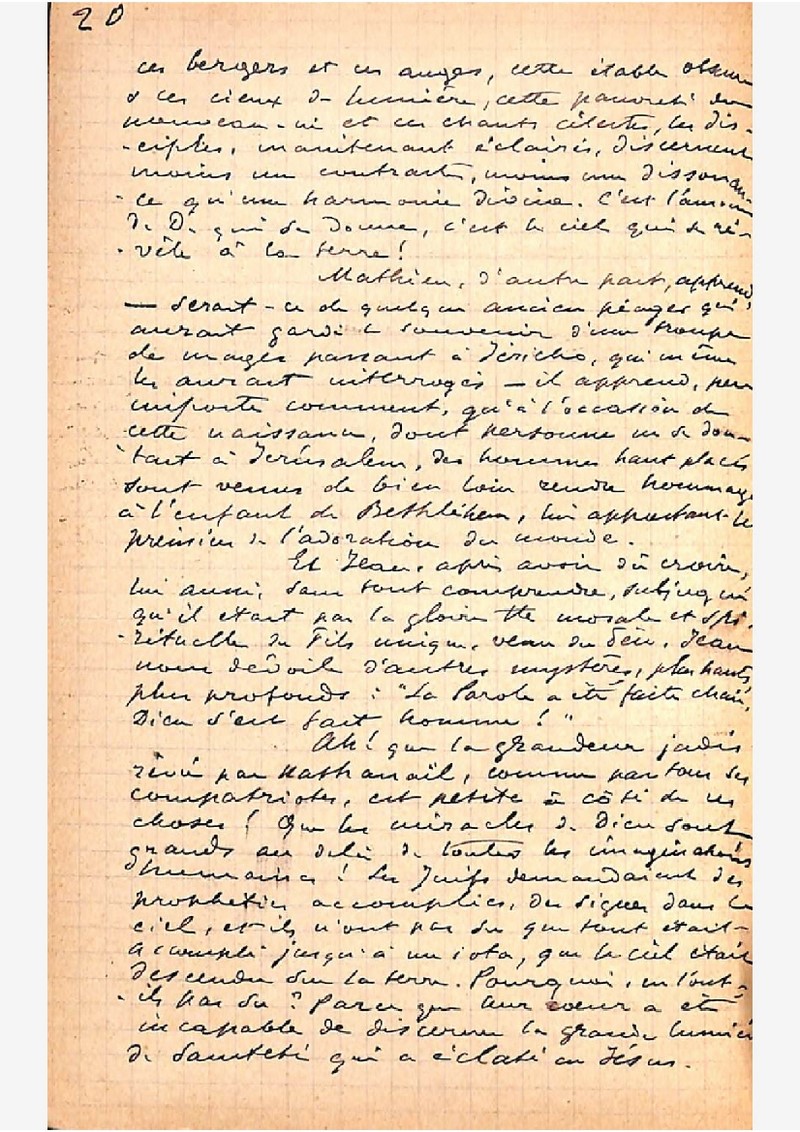 20
ces bergers et ces anges, cette étable obscure
& ces cieux de lumière, cette pauvreté du
nouveau-né et ces chants célestes, les dis-
-ciples, maintenant éclairés, discernent
moins un contraste, moins une dissonan-
-ce qu'une harmonie divine. C'est l'amour
de D. qui se donne, c'est le ciel qui se ré-
-vèle à la terre!
Mathieu, d'autre part, apprend,
— serait-ce de quelque ancien péager qui
aurait gardé le souvenir d'une troupe
de mages passant à Jéricho, qui même
les aurait interrogés — il apprend, peu
importe comment, qu'à l'occasion de
cette naissance, dont personne ne se dou-
-tait à Jérusalem, des hommes haut placés
sont venus de bien loin rendre hommage
à l'enfant de Bethléhem, lui apportant les
prémices de l'adoration du monde.
Et Jean, après avoir dû croire,
lui aussi, sans tout comprendre, subjugué
qu'il était par la gloire morale et spi-
-rituelle du Fils unique, venu du Père, Jean
nous dévoile d'autres mystères, plus hauts,
plus profonds : "La Parole a été faite chair,
Dieu s'est fait homme!"
Ah! que la grandeur jadis
rêvée par Nathanaël, comme par tous ses
compatriotes, est petite à côté de ces
choses! Que les miracles de Dieu sont
grands au delà de toutes les imaginations
humaines! Les Juifs demandaient des
prophéties accomplies, des signes dans le
ciel, et ils n'ont pas su que tout était
accompli jusqu'à un iota, que le ciel était
descendu sur la terre. Pourquoi ne l'ont-
-ils pas su? Parce que leur cœur a été
incapable de discerner la grande lumière
de sainteté qui a éclaté en Jésus.